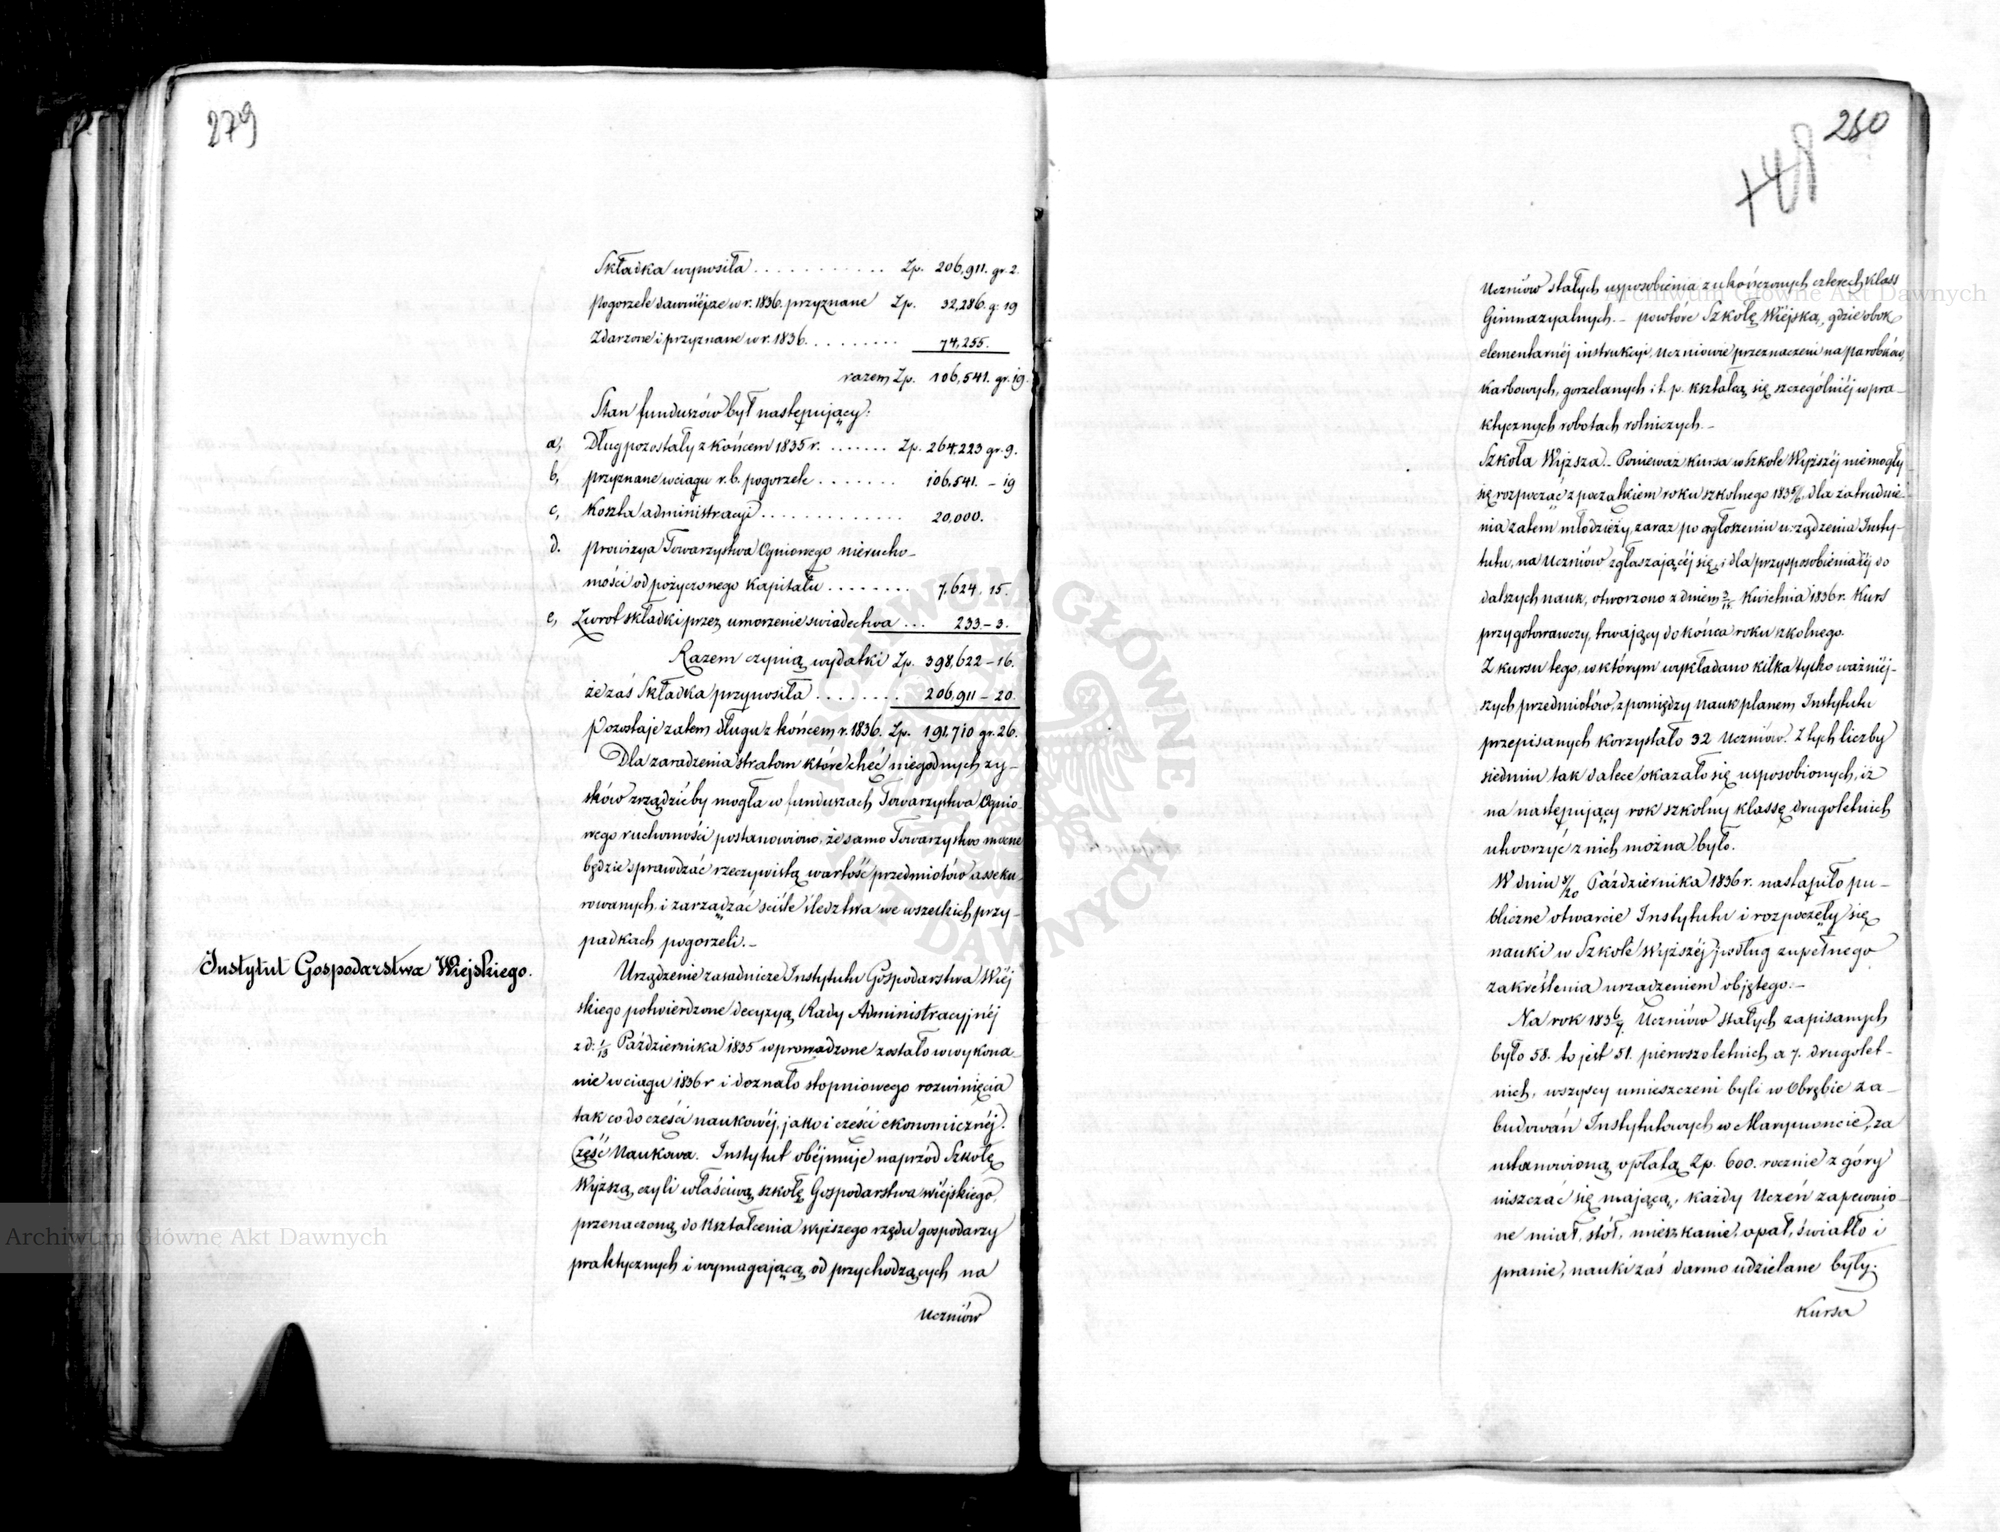 279
Składka wynosiła . . . . . . . . . . . . Zp. 206,911. gr. 2.
Pogorzele dawniejsze w r. 1836. przyznane Zp. 32,286. g: 19
Zdarzone i przyznane w r. 1836. . . . . . . . . 74,255.
razem Zp. 106,541. gr. 19.
Stan funduszów był następujący:
a, Dług pozostały z końcem 1835 r. . . . . . . . Zp. 264,223 gr. 9.
b, przyznane w ciągu r. b. pogorzele . . . . . . . 106,541. – 19
c, Koszta administracyi . . . . . . . . . . . . . 20,000.
d. prowizya Towarzystwa Ogniowego nierucho-
mości od pożyczonego kapitału . . . . . . . . 7,624. 15.
e, Zwrot składki przez umorzenie świadectwa . . . 233. – 3.
Razem czynią wydatki Zp. 398,622 – 16.
że zaś Składka przynosiła . . . . . . . . 206,911 – 20.
Pozostaje zatem długu z końcem r. 1836. Zp. 191,710 gr. 26.
Dla zaradzenia stratom które chęć niegodnych zy-
sków zrządzić by mogła w funduszach Towarzystwa Ognio-
wego ruchomości postanowiono, że samo Towarzystwo mocne
będzie sprawdzać rzeczywistą wartość przedmiotów asseku-
rowanych, i zarządzać ściśle śledztwa we wszelkich przy-
padkach pogorzeli. –
Instytut Gospodarstwa Wiejskiego.
Urządzenie zasadnicze Instytutu Gospodarstwa Wiej
skiego potwierdzone decyzyą Rady Administracyjnéj
z d: 1/13 Października 1835 wprowadzone zostało w wykona-
nie w ciągu 1836 r i doznało stopniowego rozwinięcia
tak co do części naukowéj, jako i części ekonomicznéj.
Część Naukowa. Instytut obéjmuje naprzód Szkołę
Wyższą, czyli właściwą szkołę Gospodarstwa wiéjskiego,
przenaczoną do kształcenia wyższego rzędu gospodarzy
praktycznych i wymagającą od przychodzących na
Uczniów
260
+48
Uczniów stałych usposobienia z ukończonych czterech klass
Gimnazyalnych. – powtóre Szkołę Wiéjską, gdzie obok
elementarnéj instrukcyi, Uczniowie przeznaczeni na parobków,
karbowych, gorzelanych i t. p. kształcą się szczególniéj w pra-
ktycznych robotach rolniczych. –
Szkoła Wyższa. – Ponieważ kursa w Szkole Wyższéj niemogły
się rozpocząć z początkiem roku szkolnego 1835/6, dla zatrudnie-
nia zatem młodzieży, zaraz po ogłoszeniu urządzenia Insty-
tutu, na Uczniów zgłaszającéj się, i dla przysposobienia téj do
dalszych nauk, otworzono z dniem 3/15 Kwietnia 1836 r. Kurs
przygotowawczy, trwający do końca roku szkolnego.
Z kursu tego, w którym wykładano kilka tylko ważniéj-
szych przedmiotów, z pomiędzy nauk planem Instytutu
przepisanych korzystało 32 Uczniów. Z tych liczby
siedmiu tak dalece okazało się usposobionych, iż
na następujący rok szkolny klassę drugoletnich
utworzyć z nich można było.
W dniu 8/20 Października 1836 r. nastąpiło pu-
bliczne otwarcie Instytutu i rozpoczęły się
nauki w Szkole Wyższéj podług zupełnego
zakreślenia urządzeniem objętego: –
Na rok 1836/7. Uczniów stałych zapisanych
było 58. to jest 51. pierwszoletnich a 7. drugolet-
nich, wszyscy umieszczeni byli w Obrębie za-
budowań Instytutowych w Marymoncie, za
ustanowioną opłatą Zp. 600. rocznie z góry
uiszczać się mającą, każdy Uczeń zapewnio-
ne miał, stół, mieszkanie, opał, światło i
pranie, nauki zaś darmo udzielane były.
Kursa
Archiwum Główne Akt Dawnych
Archiwum Główne Akt Dawnych
ARCHIWUM GŁÓWNE · AKT DAWNYCH ·